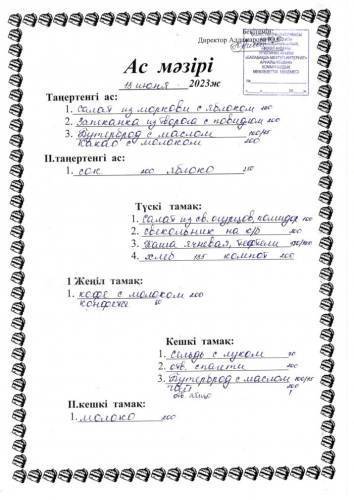 Бекітемін:
Директор
Ас мәзірі
13 июня 2023ж
Таңертенгі ас:
1. Салат из моркови с яблоком 200
2. Запеканка из творога с повидлом 200
3. Бутерброд с маслом
какао с молоком 200
II.таңертенгі ас:
1. сок 200 яблоко
Түскі тамақ:
1. Салат из св. огурцов, помидор 100
2. Свекольник на к/б 200
3. Каша ячневая, тефтели
4. хлеб компот 200
I Жеңіл тамақ:
1. кофе с молоком 200
конфета
Кешкі тамақ:
1. Сельдь с луком
2. отв. спагетти 200
3. Бутерброд с маслом
чай 200
отв. яйцо 1
II.кешкі тамақ:
1. молоко 200